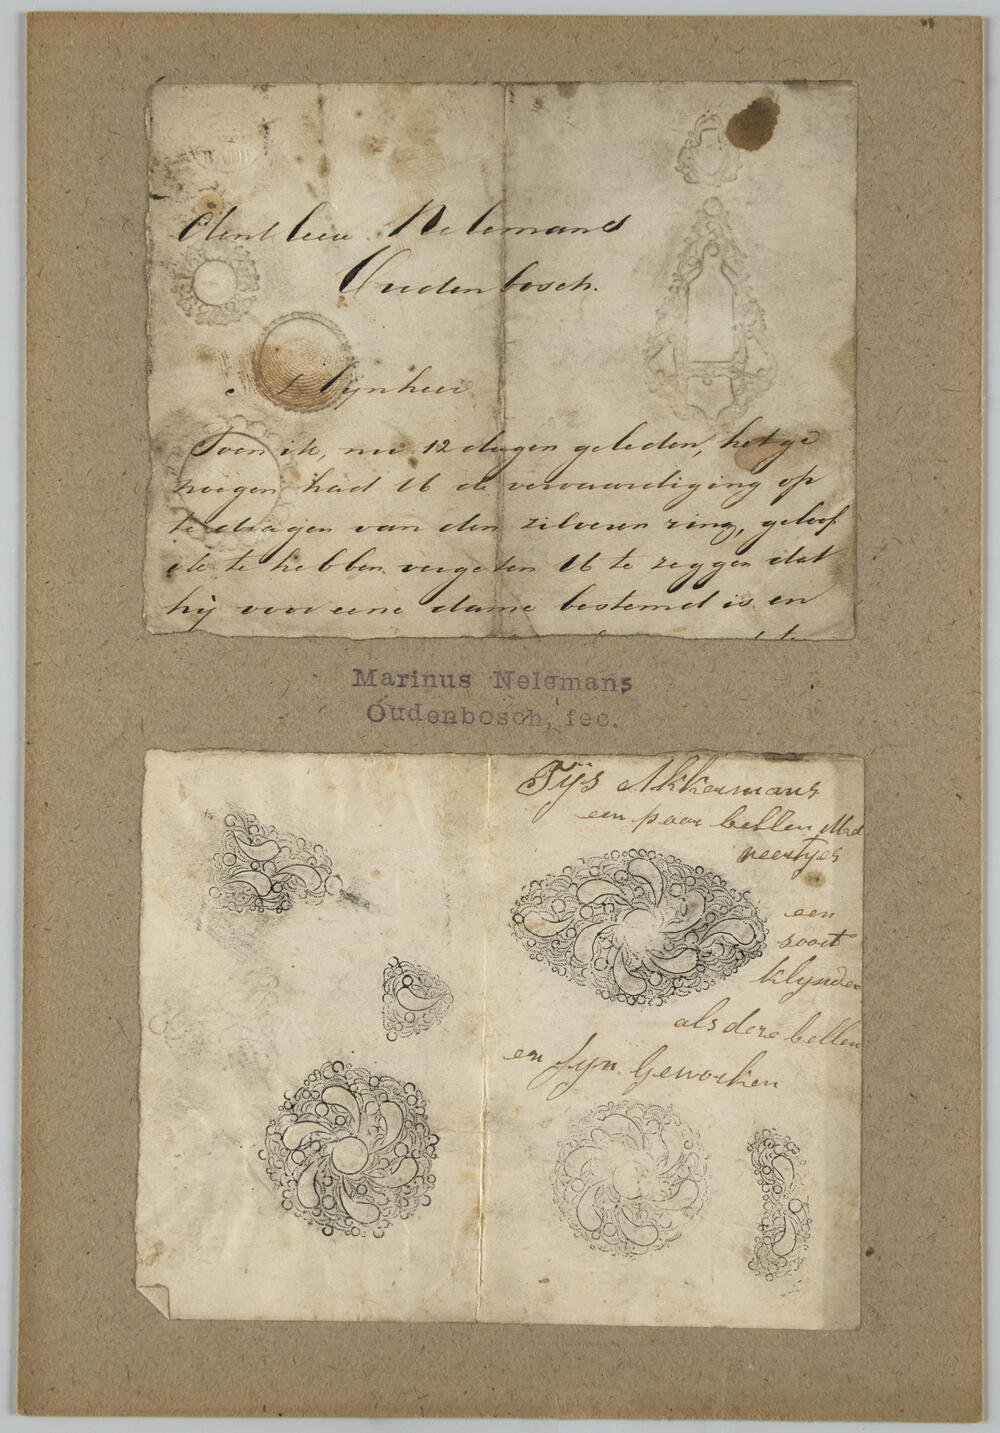 Nelemans
Oudenbosch.
Mynheer
Toen ik, nu 12 dagen geleden, het ge
noegen had U de vervaardiging op
te dragen van den zilveren ring, geloof
ik te hebben vergeten U te zeggen dat
hij voor eene dame bestemd is en
Marinus Nelemans
Oudenbosch, fec.
Tÿs Akkermans
een paar bellen Med
neertjes
een
soort
klynder
als deze bellen
en fyn Gewerken